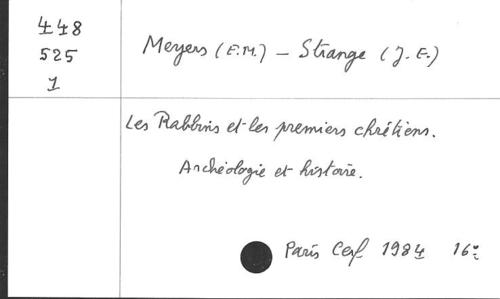 448
525
1
Meyers (E.M.) – Strange (J.E.)
Les Rabbins et les premiers chrétiens.
Archéologie et histoire.
Paris Cerf 1984 16°